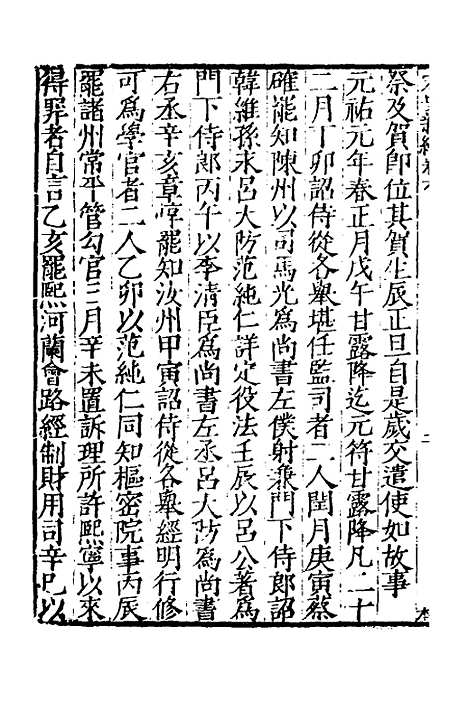 祭及賀即位其賀生辰正旦自是歲交遣使如故事
元祐元年春正月戊午甘露降迄元符甘露降凡二十
二月丁卯詔侍從各舉堪任監司者二人閏月庚寅蔡
確罷知陳州以司馬光爲尚書左僕射兼門下侍郎詔
韓維孫永呂大防范純仁詳定役法壬辰以呂公著爲
門下侍郎丙午以李清臣爲尚書左丞呂大防爲尚書
右丞辛亥章惇罷知汝州甲寅詔侍從各舉經明行修
可爲學官者二人乙卯以范純仁同知樞密院事丙辰
罷諸州常平管勾官三月辛未置訴理所許熙寧以來
得罪者自言乙亥罷熙河蘭會路經制財用司辛巳以